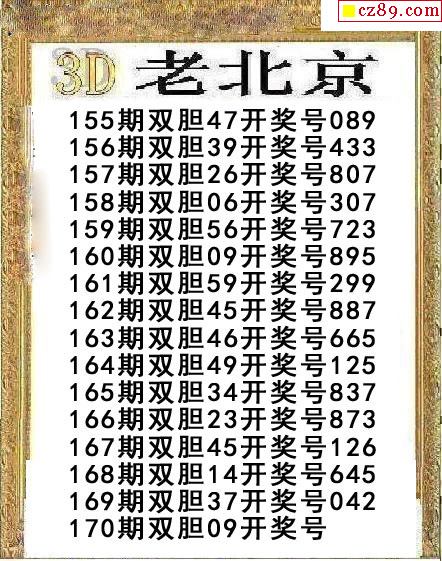 cz89.com
3D 老北京
155期双胆47开奖号089
156期双胆39开奖号433
157期双胆26开奖号807
158期双胆06开奖号307
159期双胆56开奖号723
160期双胆09开奖号895
161期双胆59开奖号299
162期双胆45开奖号887
163期双胆46开奖号665
164期双胆49开奖号125
165期双胆34开奖号837
166期双胆23开奖号873
167期双胆45开奖号126
168期双胆14开奖号645
169期双胆37开奖号042
170期双胆09开奖号